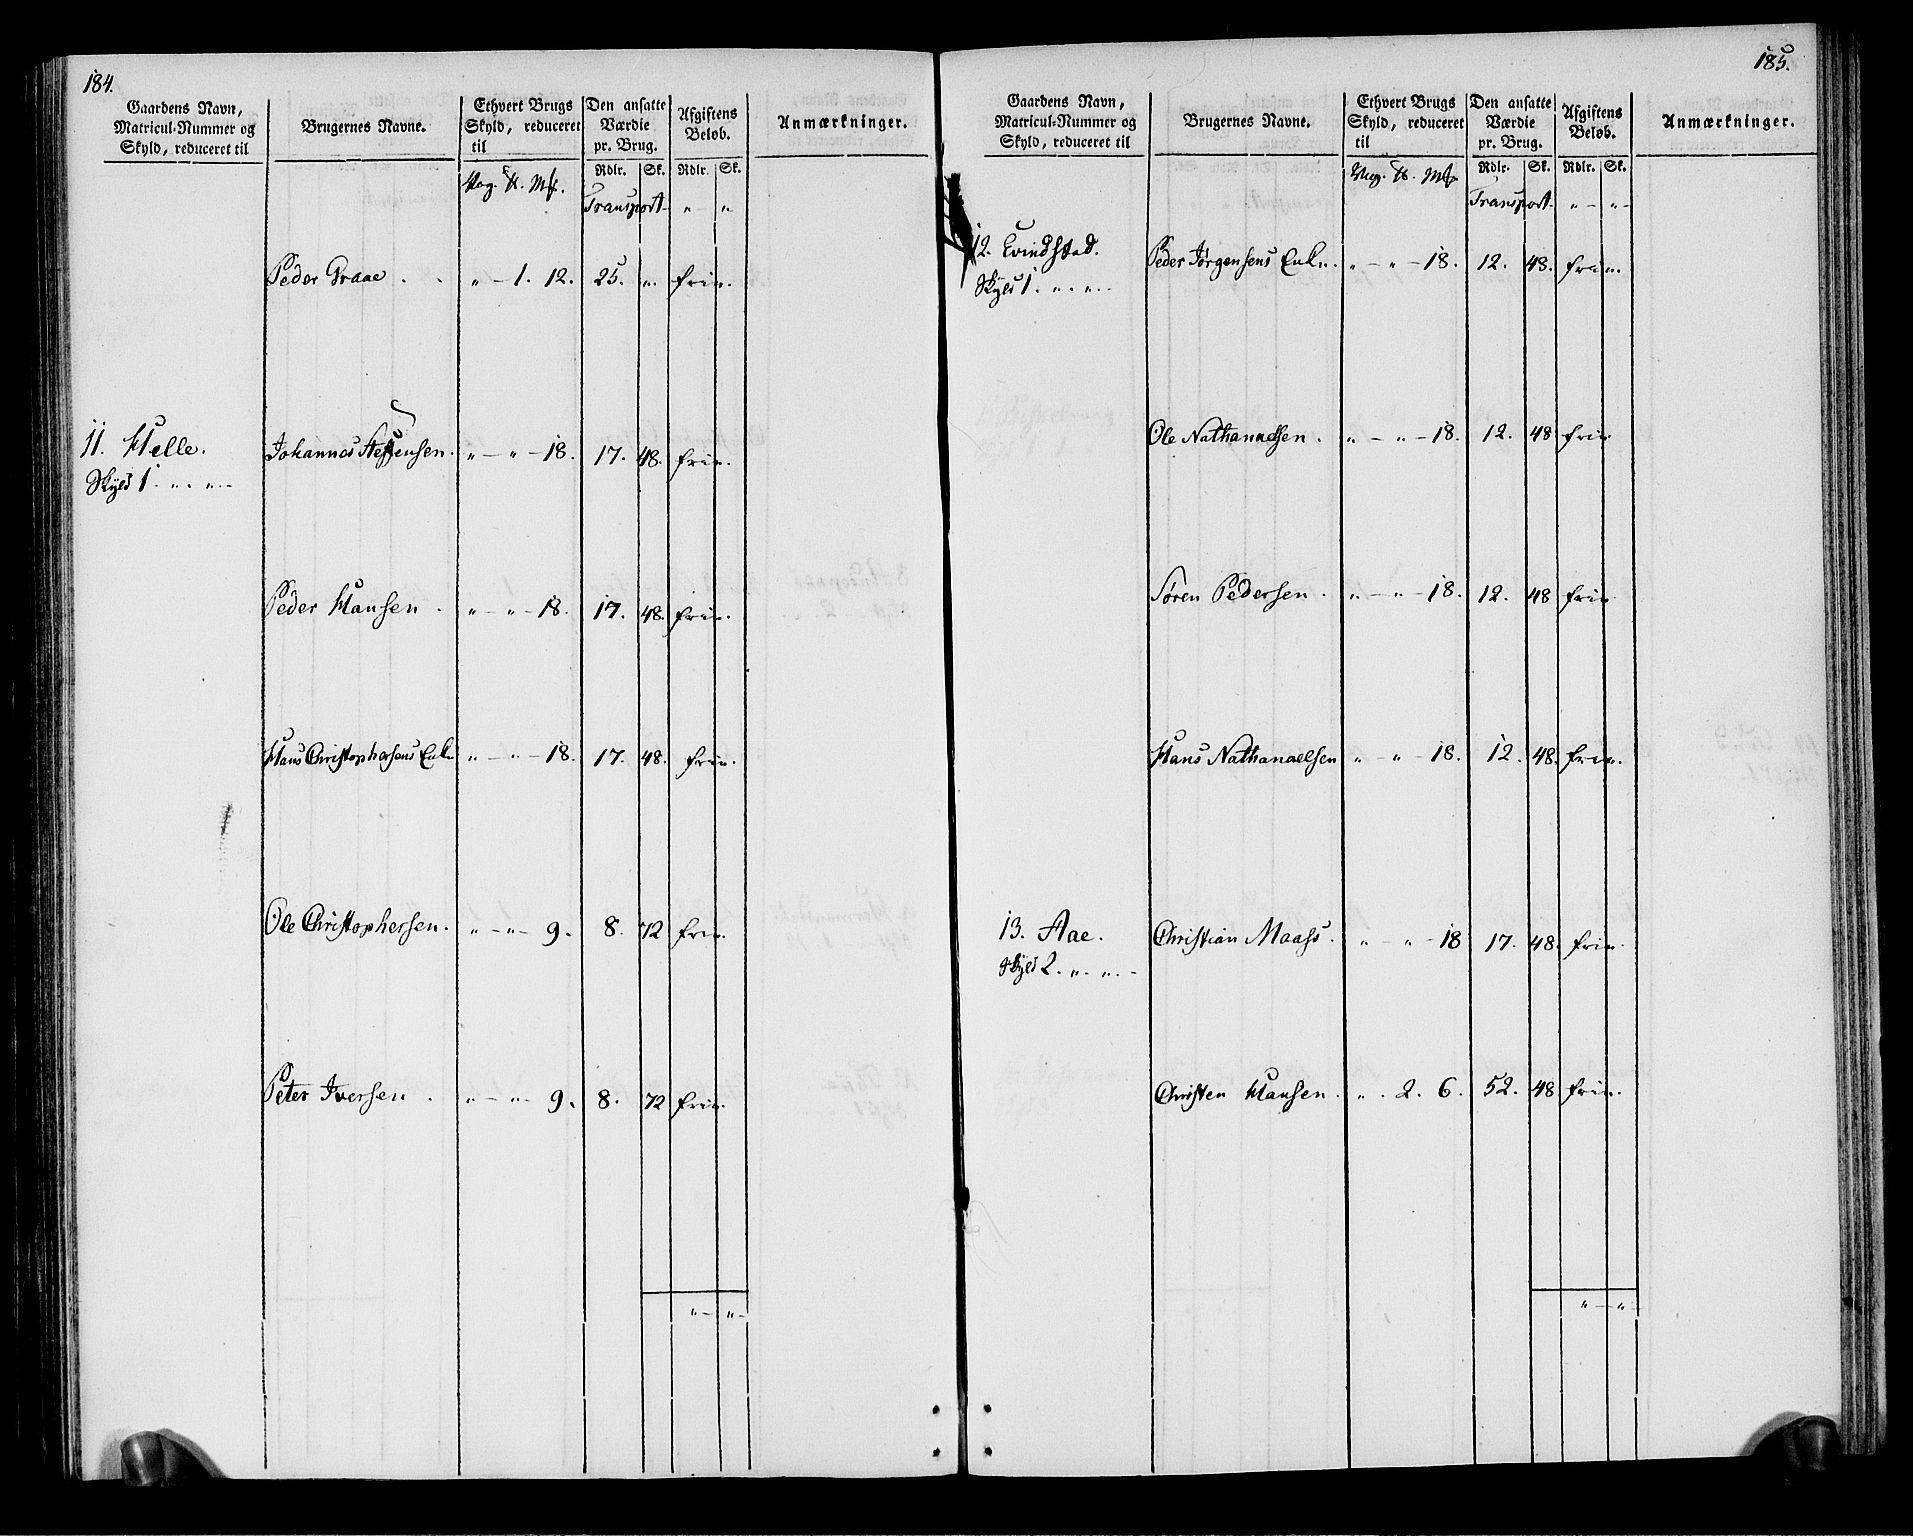 184.
Gaardens Navn, Matricul-Nummer og Skyld, reduceret til
Brugernes Navne.
Ethvert Brugs Skyld, reduceret til
Den ansatte Værdie pr. Brug.
Afgiftens Beløb.
Anmærkninger.
Rdlr. Sk. Rdlr. Sk.
Transport - " - "
Peder Graae . . " - 1. 12. 25. ". frie.
11. Helle. Johannes Steffensen. " - " - 18. 17. 48. frie.
Skyld 1. ". ". -
Peder Hansen . " - " - 18. 17. 48. frie.
Hans Christophersens Enke " - " - 18. 17. 48. frie.
Ole Christophersen. " - " - 9. 8. 72 frie.
Peter Iversen . " - " - 9. 8. 72 frie.
" - " -
185.
Gaardens Navn, Matricul-Nummer og Skyld, reduceret til
Brugernes Navne.
Ethvert Brugs Skyld, reduceret til
Den ansatte Værdie pr. Brug.
Afgiftens Beløb.
Anmærkninger.
Rdlr. Sk. Rdlr. Sk.
Transport. " - " -
12. Qvindstad. Peder Jørgensens Enke. " - " - 18. 12. 48. frie.
Skyld 1. ". ". .
Ole Nathanaelsen . " - " - 18. 12. 48 frie
Søren Pedersen . " - " - 18. 12. 48 frie
Hans Nathanaelsen " - " - 18. 12. 48. frie.
13. Aae. Christian Maass. " - " - 18 17. 48. frie.
Skyld 2. ". ". -
Christen Hansen . " . 2. 6. 52. 48 frie.
" - " -